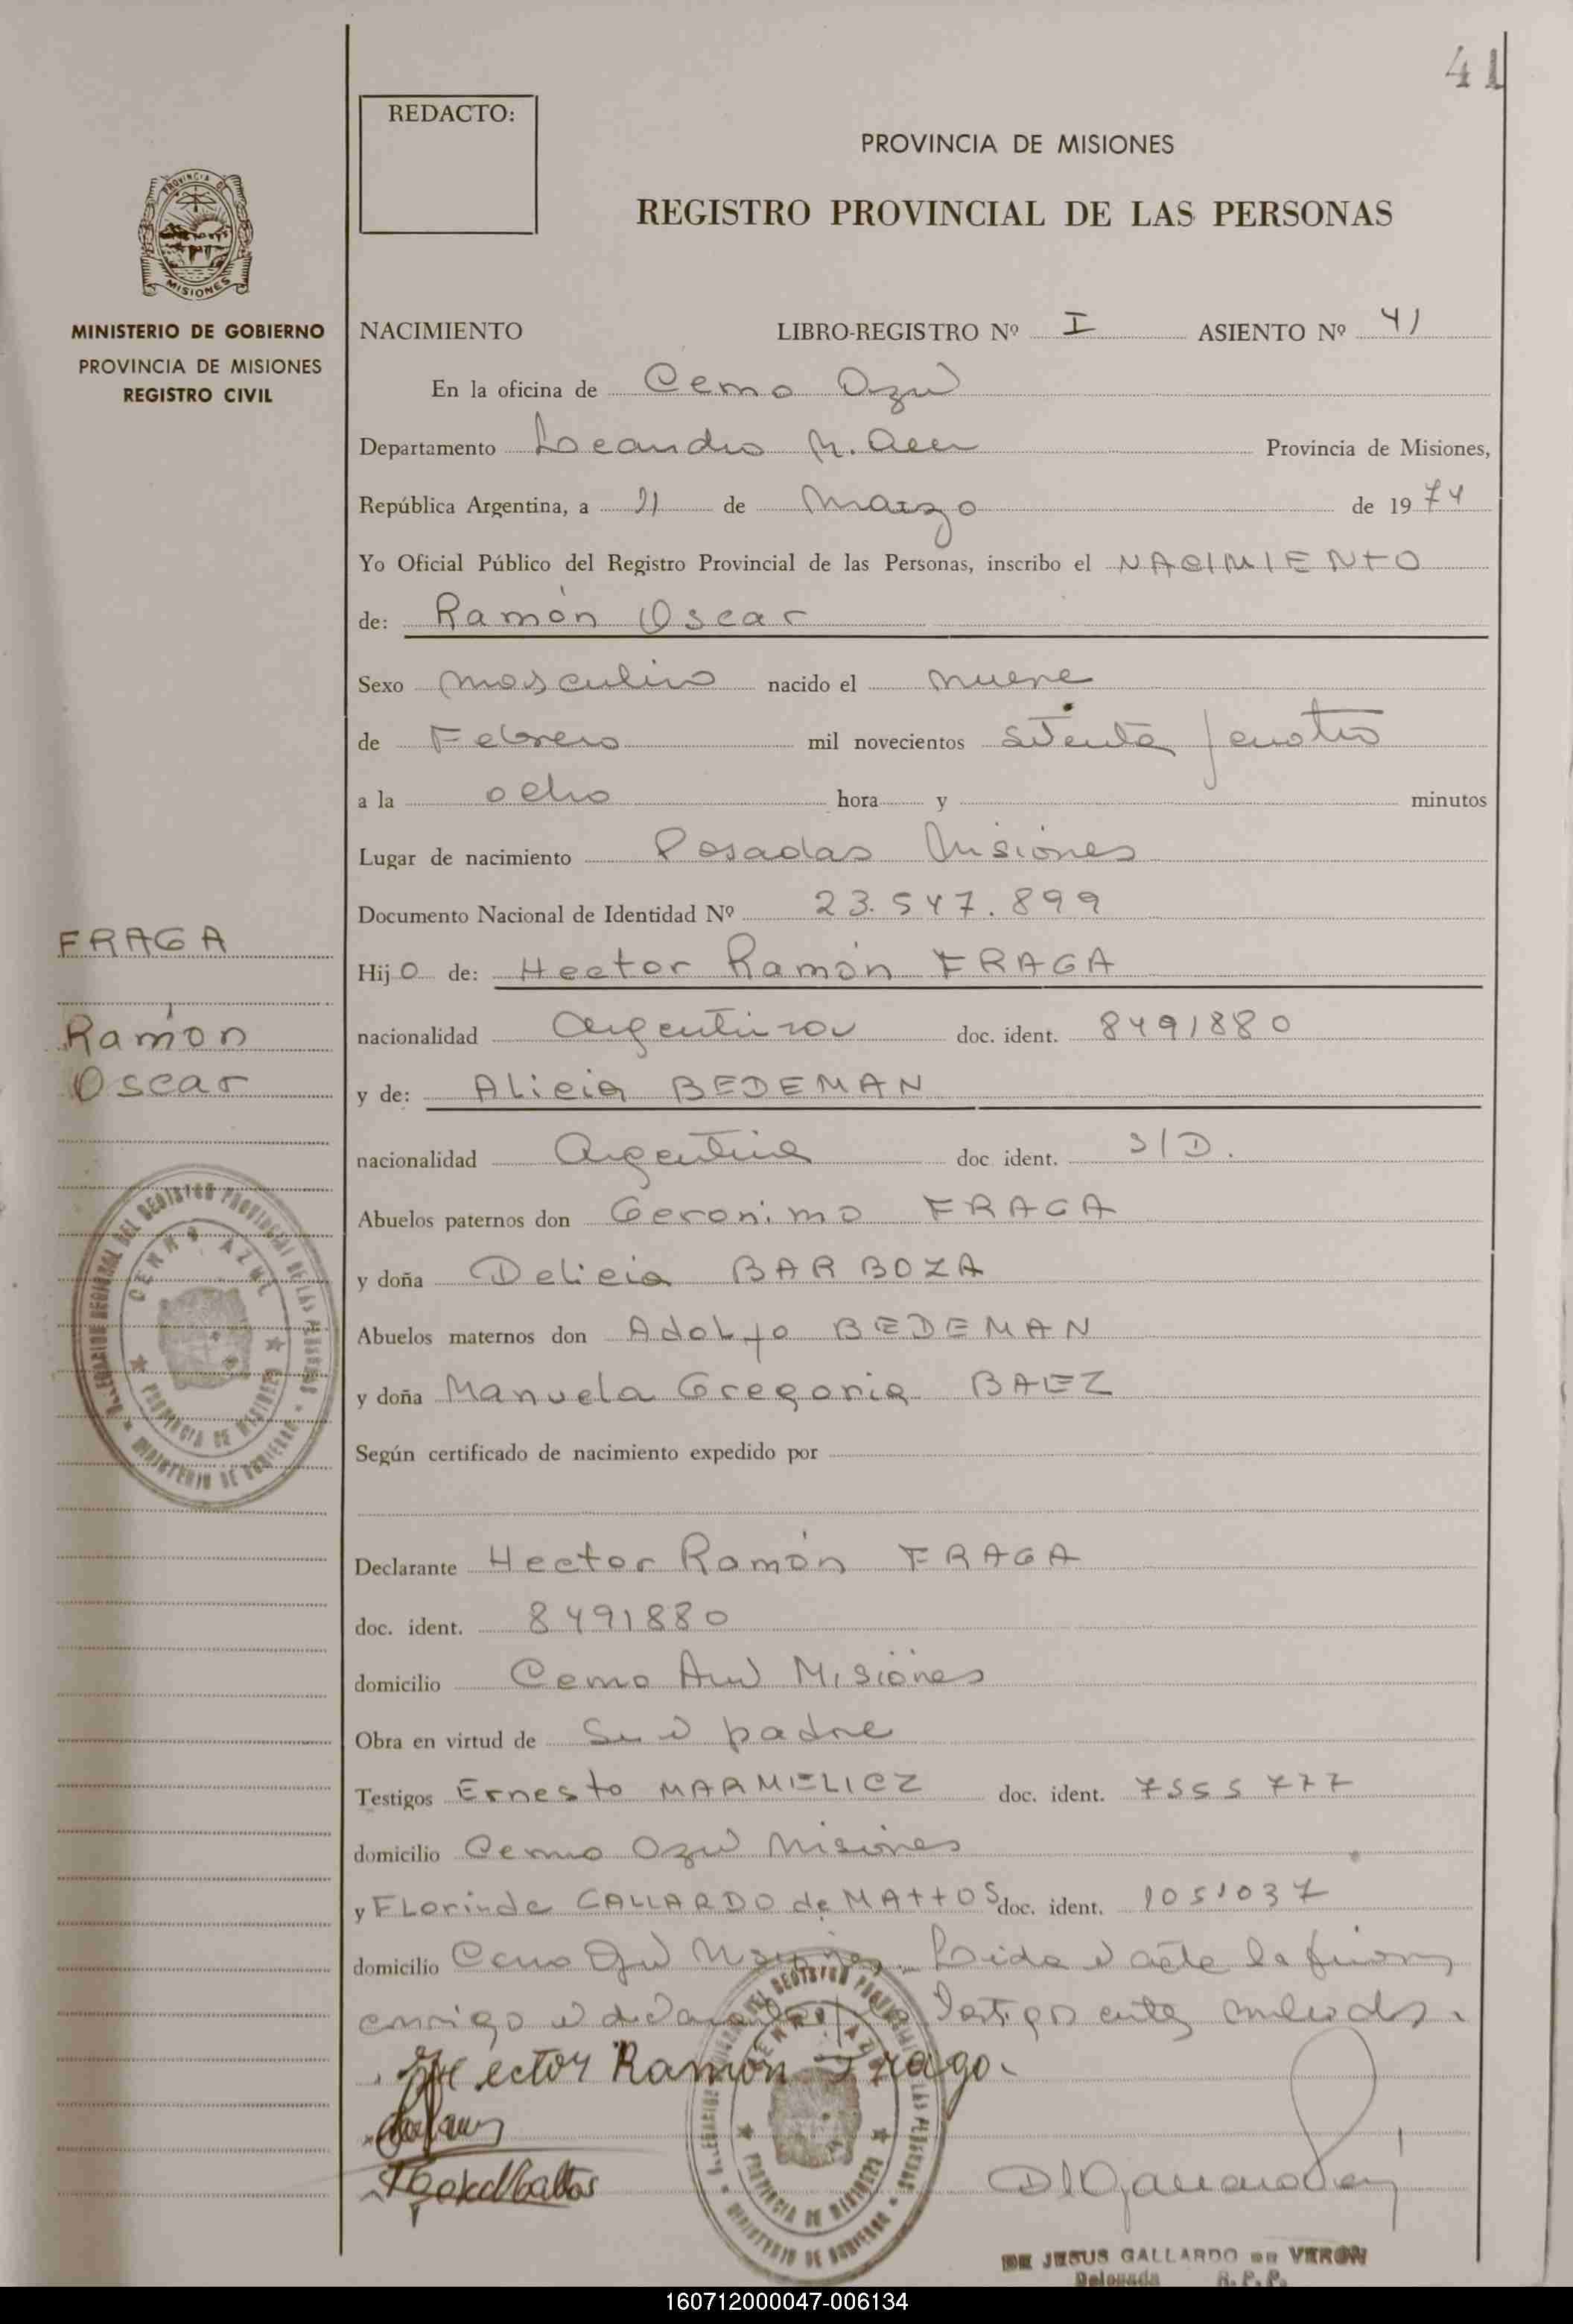 41
REDACTO:
PROVINCIA DE MISIONES
REGISTRO PROVINCIAL DE LAS PERSONAS
PROVINCIA DE
MISIONES
MINISTERIO DE GOBIERNO
PROVINCIA DE MISIONES
REGISTRO CIVIL
NACIMIENTO LIBRO-REGISTRO Nº I ASIENTO Nº 41
En la oficina de Cerro Azul
Departamento Leandro N. Alem Provincia de Misiones,
República Argentina, a 21 de Marzo de 1974
Yo Oficial Público del Registro Provincial de las Personas, inscribo el NACIMIENTO
de: Ramón Oscar
Sexo masculino nacido el nueve
de Febrero mil novecientos setenta y cuatro
a la ocho hora y minutos
Lugar de nacimiento Posadas Misiones
Documento Nacional de Identidad Nº 23.547.899
FRAGA
Hijo de: Hector Ramón FRAGA
nacionalidad argentina doc. ident. 8491880
Ramón
Oscar
y de: Alicia BEDEMAN
nacionalidad Argentina doc ident. S/D.
Abuelos paternos don Geronimo FRAGA
y doña Delicia BARBOZA
Abuelos maternos don Adolfo BEDEMAN
y doña Manuela Gregoria BAEZ
DELEGACION REGIONAL DEL REGISTRO PROVINCIAL DE LAS PERSONAS
CERRO AZUL
PROVINCIA DE MISIONES
MINISTERIO DE GOBIERNO
Según certificado de nacimiento expedido por
Declarante Hector Ramón FRAGA
doc. ident. 8491880
domicilio Cerro Azul Misiones
Obra en virtud de Ser el padre
Testigos Ernesto MARMELICZ doc. ident. 7555777
domicilio Cerro Azul Misiones
y Florinda GALLARDO de MATTOS doc. ident. 1051037
domicilio Cerro Azul Misiones. Leida el acta la firman
conmigo el declarante y los Testigos antes mencionados.
Hector Ramón Fraga.
CERRO AZUL
PROVINCIA DE MISIONES
MINISTERIO DE GOBIERNO
DE JESUS GALLARDO DE VERON
Delegada R. P. P.
160712000047-006134